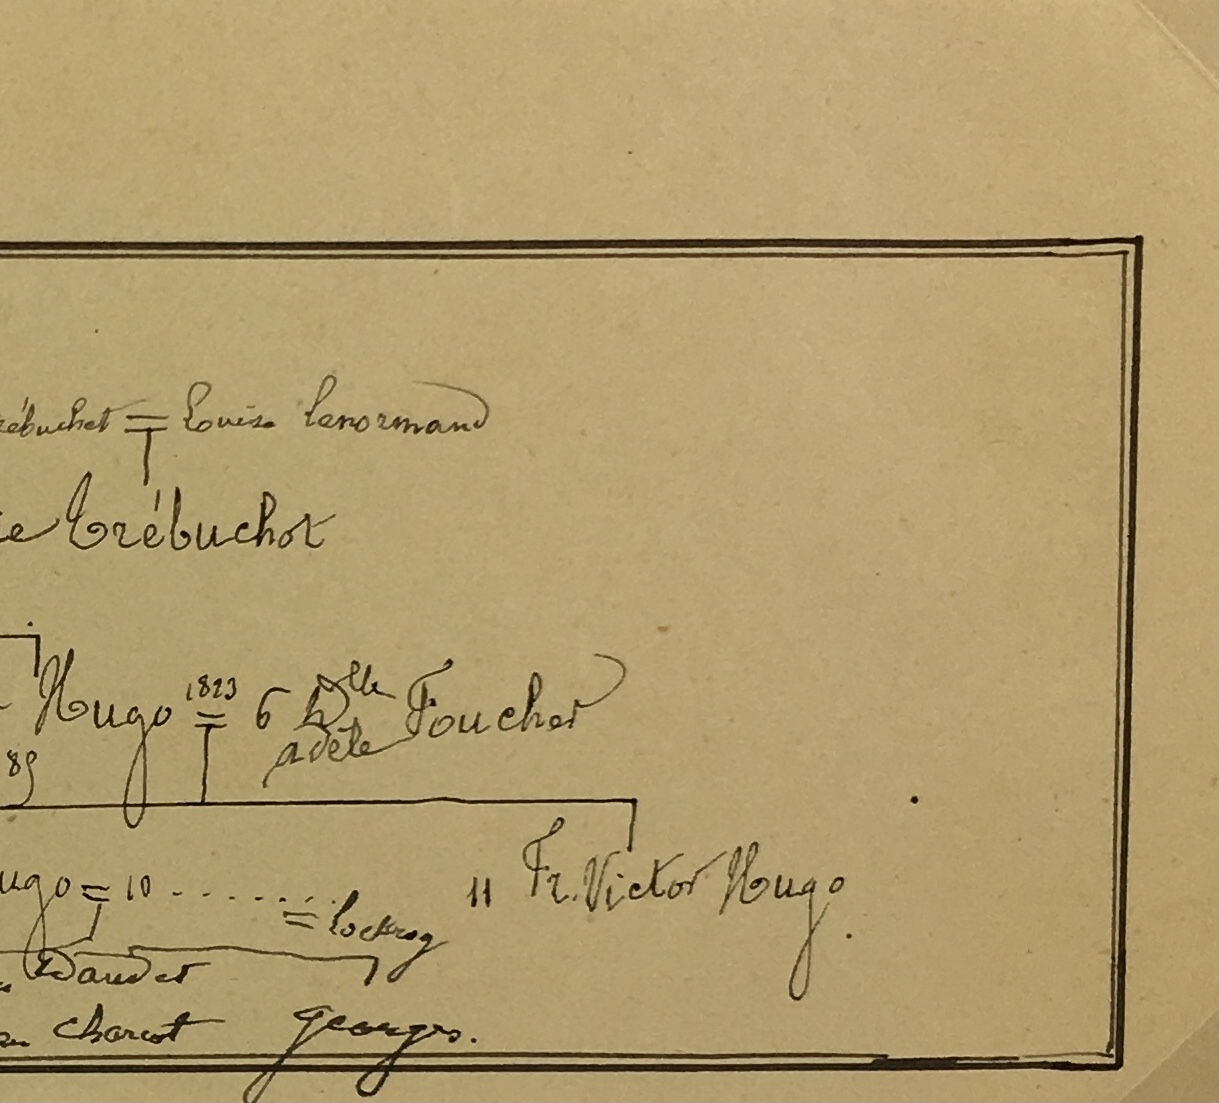 rébuchet = Louise Lenormand
ie Trébuchet
Hugo 1823 = 6 Melle Foucher
89 adèle
ugo = 10 - . . . . . . 11 Fr. Victor Hugo.
= Lockroy
Daudet
Charcot georges.